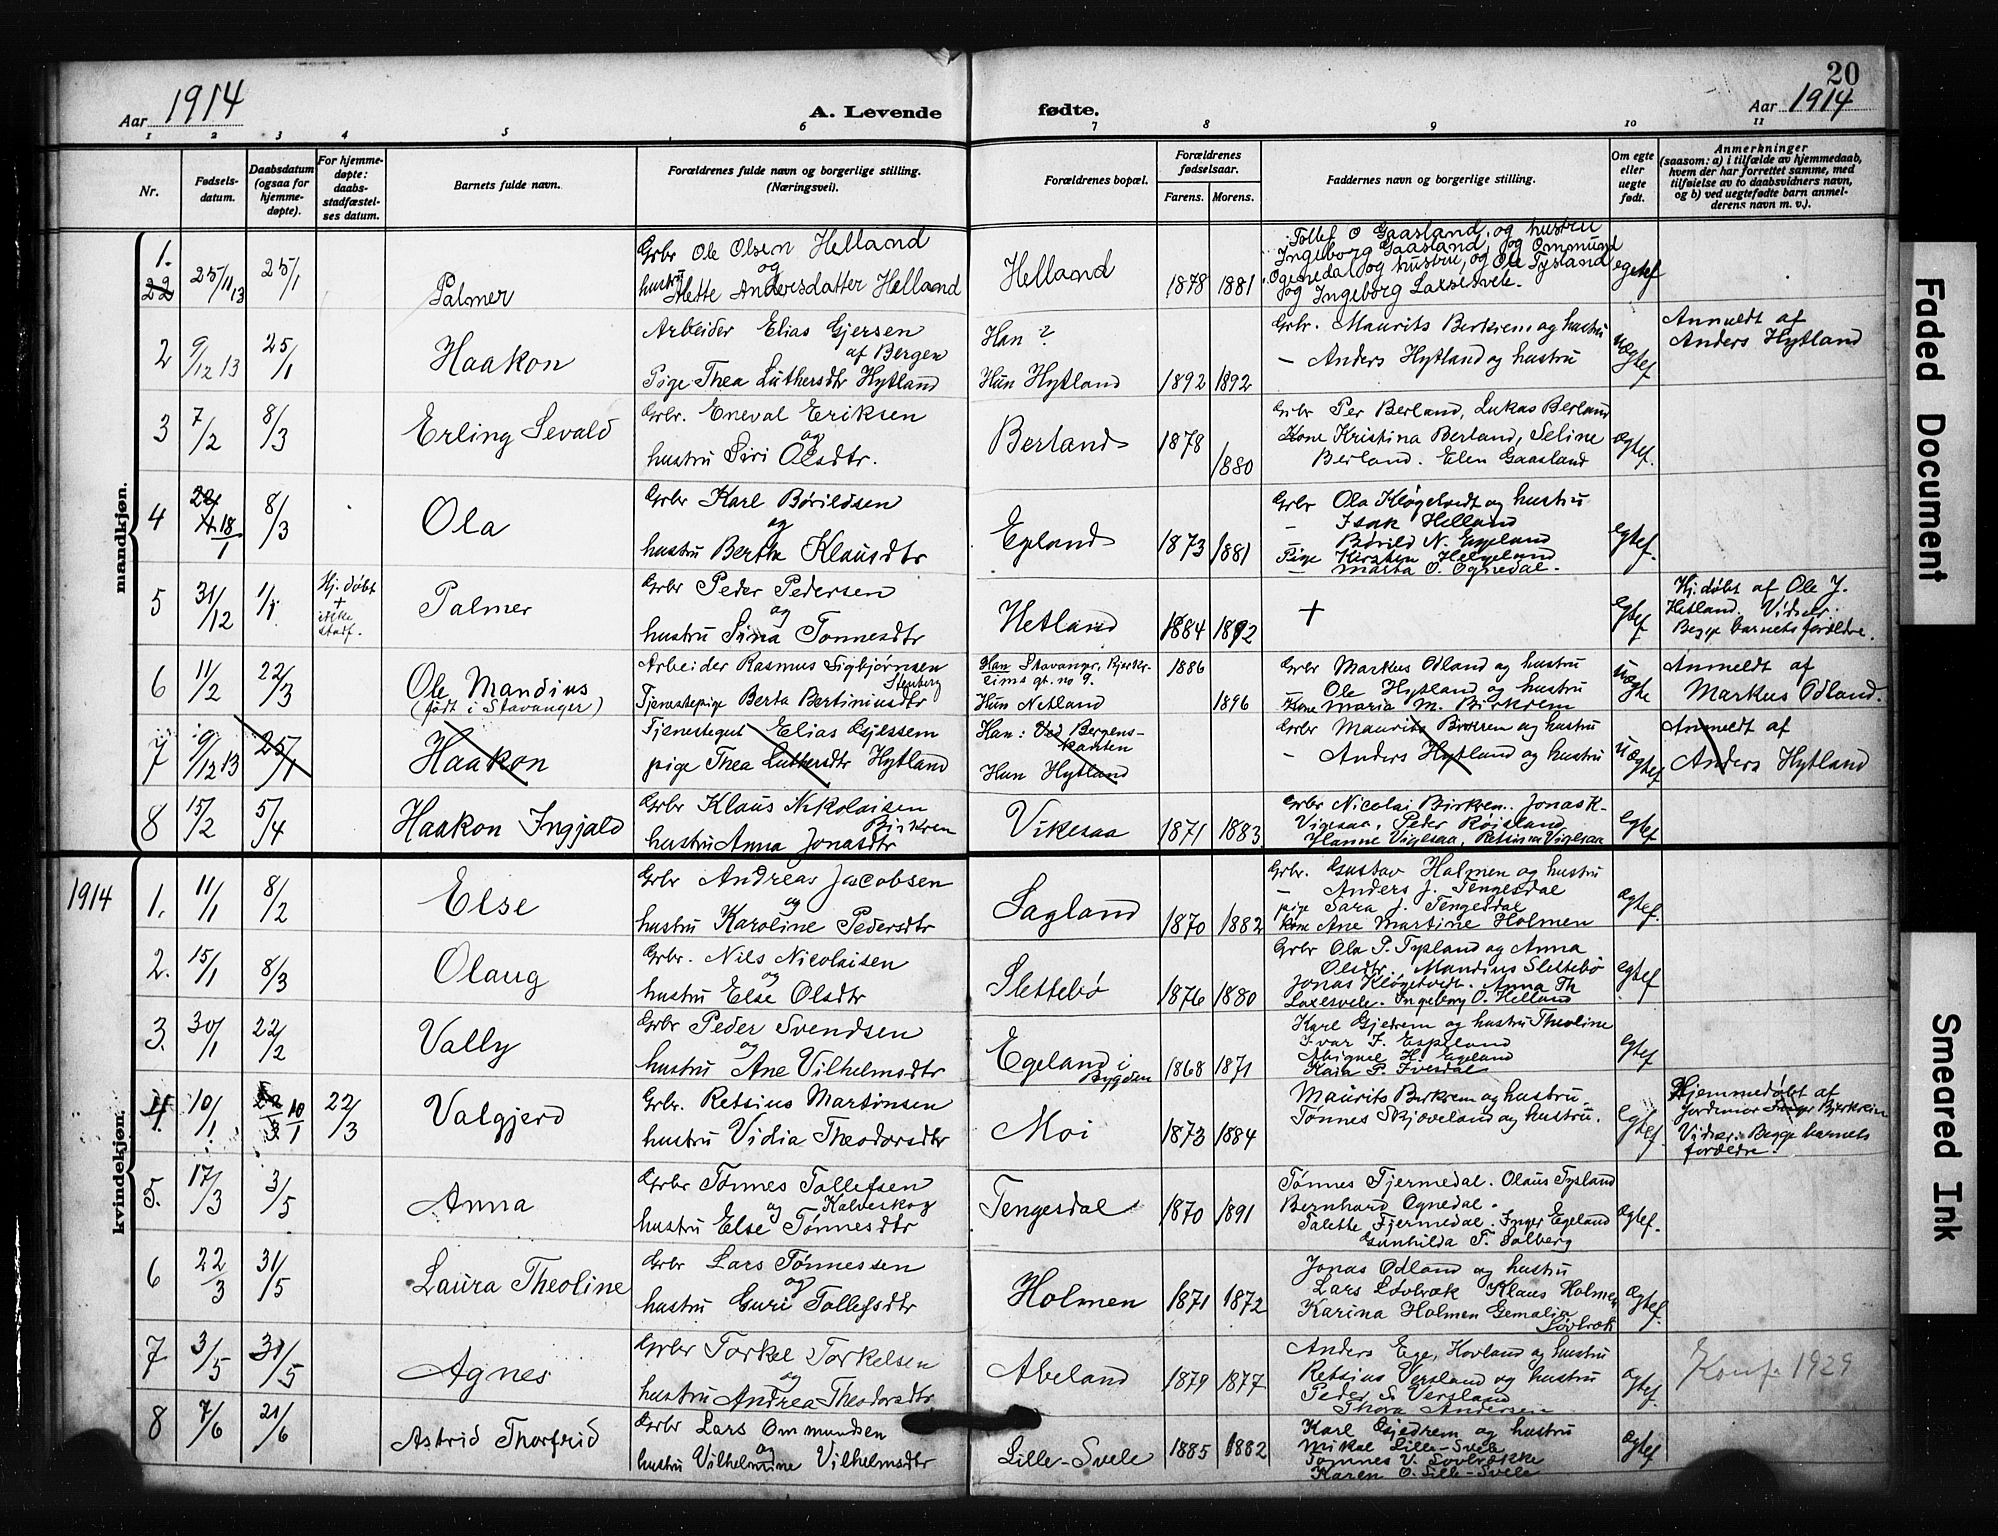 20
Aar 1914
A. Levende fødte.
Aar 1914
1 2 3 4 5 6 7 8 9 10 11
Nr.
Fødsels-
datum.
Daabsdatum
(ogsaa for
hjemme-
døpte).
For hjemme-
døpte:
daabs-
stadfæstel-
ses datum.
Barnets fulde navn.
Forældrenes fulde navn og borgerlige stilling.
(Næringsvei).
Forældrenes bopæl.
Forældrenes
fødselsaar.
Farens. Morens.
Faddernes navn og borgerlige stilling.
Om egte
eller
uegte
født.
Anmerkninger
(saasom: a) i tilfælde av hjemmedaab,
hvem der har forrettet samme, med
tilføielse av to daabsvidners navn,
og b) ved uegtefødte barn anmel-
derens navn m. v.).
mandkjøn.
1.
22
25/11 13
25/1
Palmer
Grbr Ole Olsen Helland
og
hustru Mette Andersdatter Helland
Helland
1878 1881
Tollef O Gaasland, og hustru
Ingeborg Gaasland, og Ommund
Ognedal og hustru, og Ole Tysland
og Ingeborg Laxesvele.
egtef
2
9/12 13
25/1
Haakon
Arbeider Elias Gjersen
af Bergen
Pige Thea Luthersdtr Hytland
Han ?
Hun Hytland
1892 1892
Grbr. Maurits Birkrem og hustru
— Anders Hytland og hustru
uægtef
Anmeldt af
Anders Hytland
3
7/2
8/3
Erling Sevald
Grbr. Eneval Eriksen
og
hustru Siri Olsdtr.
Berland
1878 1880
Grbr Per Berland, Lukas Berland
Kone Kristina Berland, Seline
Berland. Elen Gaasland
ægtef.
4
18/1
8/3
Ola
Grbr Karl Børildsen
og
hustru Berta Klausdtr
Egland
1873 1881
Grbr Ola Kløgetvedt og hustru
— Isak Helland
— Børild N. Egeland
Pige Kirsten Helgeland
— Marta O. Ognedal.
egtef.
5
31/12
1/1
Hj. døbt
+
ikke
stadf.
Palmer
Grbr Peder Pedersen
og
hustru Sina Tonnesdtr
Hetland
1884 1892
+
egtef
Hj. døbt af Ole J.
Hetland. Vidner:
Begge barnets forældre.
6
11/2
22/3
Ole Mandius
(født i Stavanger)
Arbeider Rasmus Sigbjørnsen
Stenberg
Tjenestepige Berta Bertiniusdtr
Han Stavanger, Bjerkr-
eims gt. no 9.
Hun Netland
1886 1896
Grbr Markus Odland og hustru
— Ole Hytland og hustru
Kone Maria M. Birkrem
uægte
Anmeldt af
Markus Odland.
7
9/12 13
25/1
Haakon
Tjenestegut Elias Gjessem
pige Thea Luthersdtr Hytland
Han: Ved Bergens-
kanten
Hun Hytland
Grbr Maurits Birkrem og hustru
— Anders Hytland og hustru
uægtef
Anmeldt af
Anders Hytland
8
15/2
5/4
Haakon Ingjald
Grbr Klaus Nikolaisen
Birkrem
hustru Anna Jonasdtr
Vikesaa
1871 1883
Grbr Nicolai Birkrem. Jonas K.
Vigesaa, Peder Røisland
Hanne Vigesaa, Retsina Vigesaa
egtef
1914
kvindekjøn.
1.
11/1
8/2
Else
Grbr Andreas Jacobsen
og
hustru Karoline Pedersdtr
Sagland
1870 1882
Grbr. Gustav Holmen og hustru
— Anders J. Tengesdal
pige Sara J. Tengesdal
kone Ane Martine Holmen
ægtef.
2.
15/1
8/3
Olaug
Grbr. Nils Nicolaisen
og
hustru Else Olsdtr
Slettebø
1876 1880
Grbr Ola P. Tysland og Anna
Olsdtr. Mandius Slettebø
Jonas Kløgetvedt. Anna Th
Laxesvele. Ingeborg O. Helland
egtef
3.
30/1
22/2
Vally
Grbr Peder Svendsen
og
hustru Ane Vilhelmsdtr
Egeland i
Bygden
1868 1871
Karl Gjedrem og hustru Theoline
Ivar I. Espeland
Abigael H. Egeland
Kaia P. Ivesdal
egtef
4.
10/1
10/1
22/3
Valgjerd
Grbr. Retsius Martinsen
hustru Vidia Theodorsdtr
Moi
1873 1884
Maurits Birkrem og hustru.
Tønnes Skjæveland og hustru.
egtef.
Hjemmedøbt af
Jordemor Inger Bjerkreim
Vidner: Begge barnets
forældre.
5.
17/3
3/5
Anna
Grbr Tønnes Tollefsen
og Kalveskog
hustru Else Tønnesdtr
Tengesdal
1870 1891
Tønnes Fjermedal. Olaus Tysland
Bernhard Ognedal.
Talette Fjermedal. Inger Egeland
Gunhilda T. Solberg
ægtef.
6
22/3
31/5
Laura Theoline
Grbr Lars Tønnessen
og
hustru Guri Tollefsdtr
Holmen
1871 1872
Jonas Odland og hustru
Lars Løvbræk Klaus Holmen
Karina Holmen Gemalia
Løvbræk
ægtef.
7
3/5
31/5
Agnes
Grbr Torkel Torkelsen
og
hustru Andrea Theodorsdtr
Abeland
1879 1877
Anders Ege, Hovland og hustru
Retsius Versland og hustru
Peder S. Versland
Thora Andersen
ægtef.
Konf. 1929
8
7/6
21/6
Astrid Thorfrid
Grbr Lars Ommundsen
og
hustru Vilhelmine Vilhelmsdtr
Lille-Svele
1885 1882
Karl Gjedrem og hustru
Mikal Lille-Svele
Tønnes V. Løvbrække
Karen O. Lille-Svele
ægtef
Faded Document
Smeared Ink